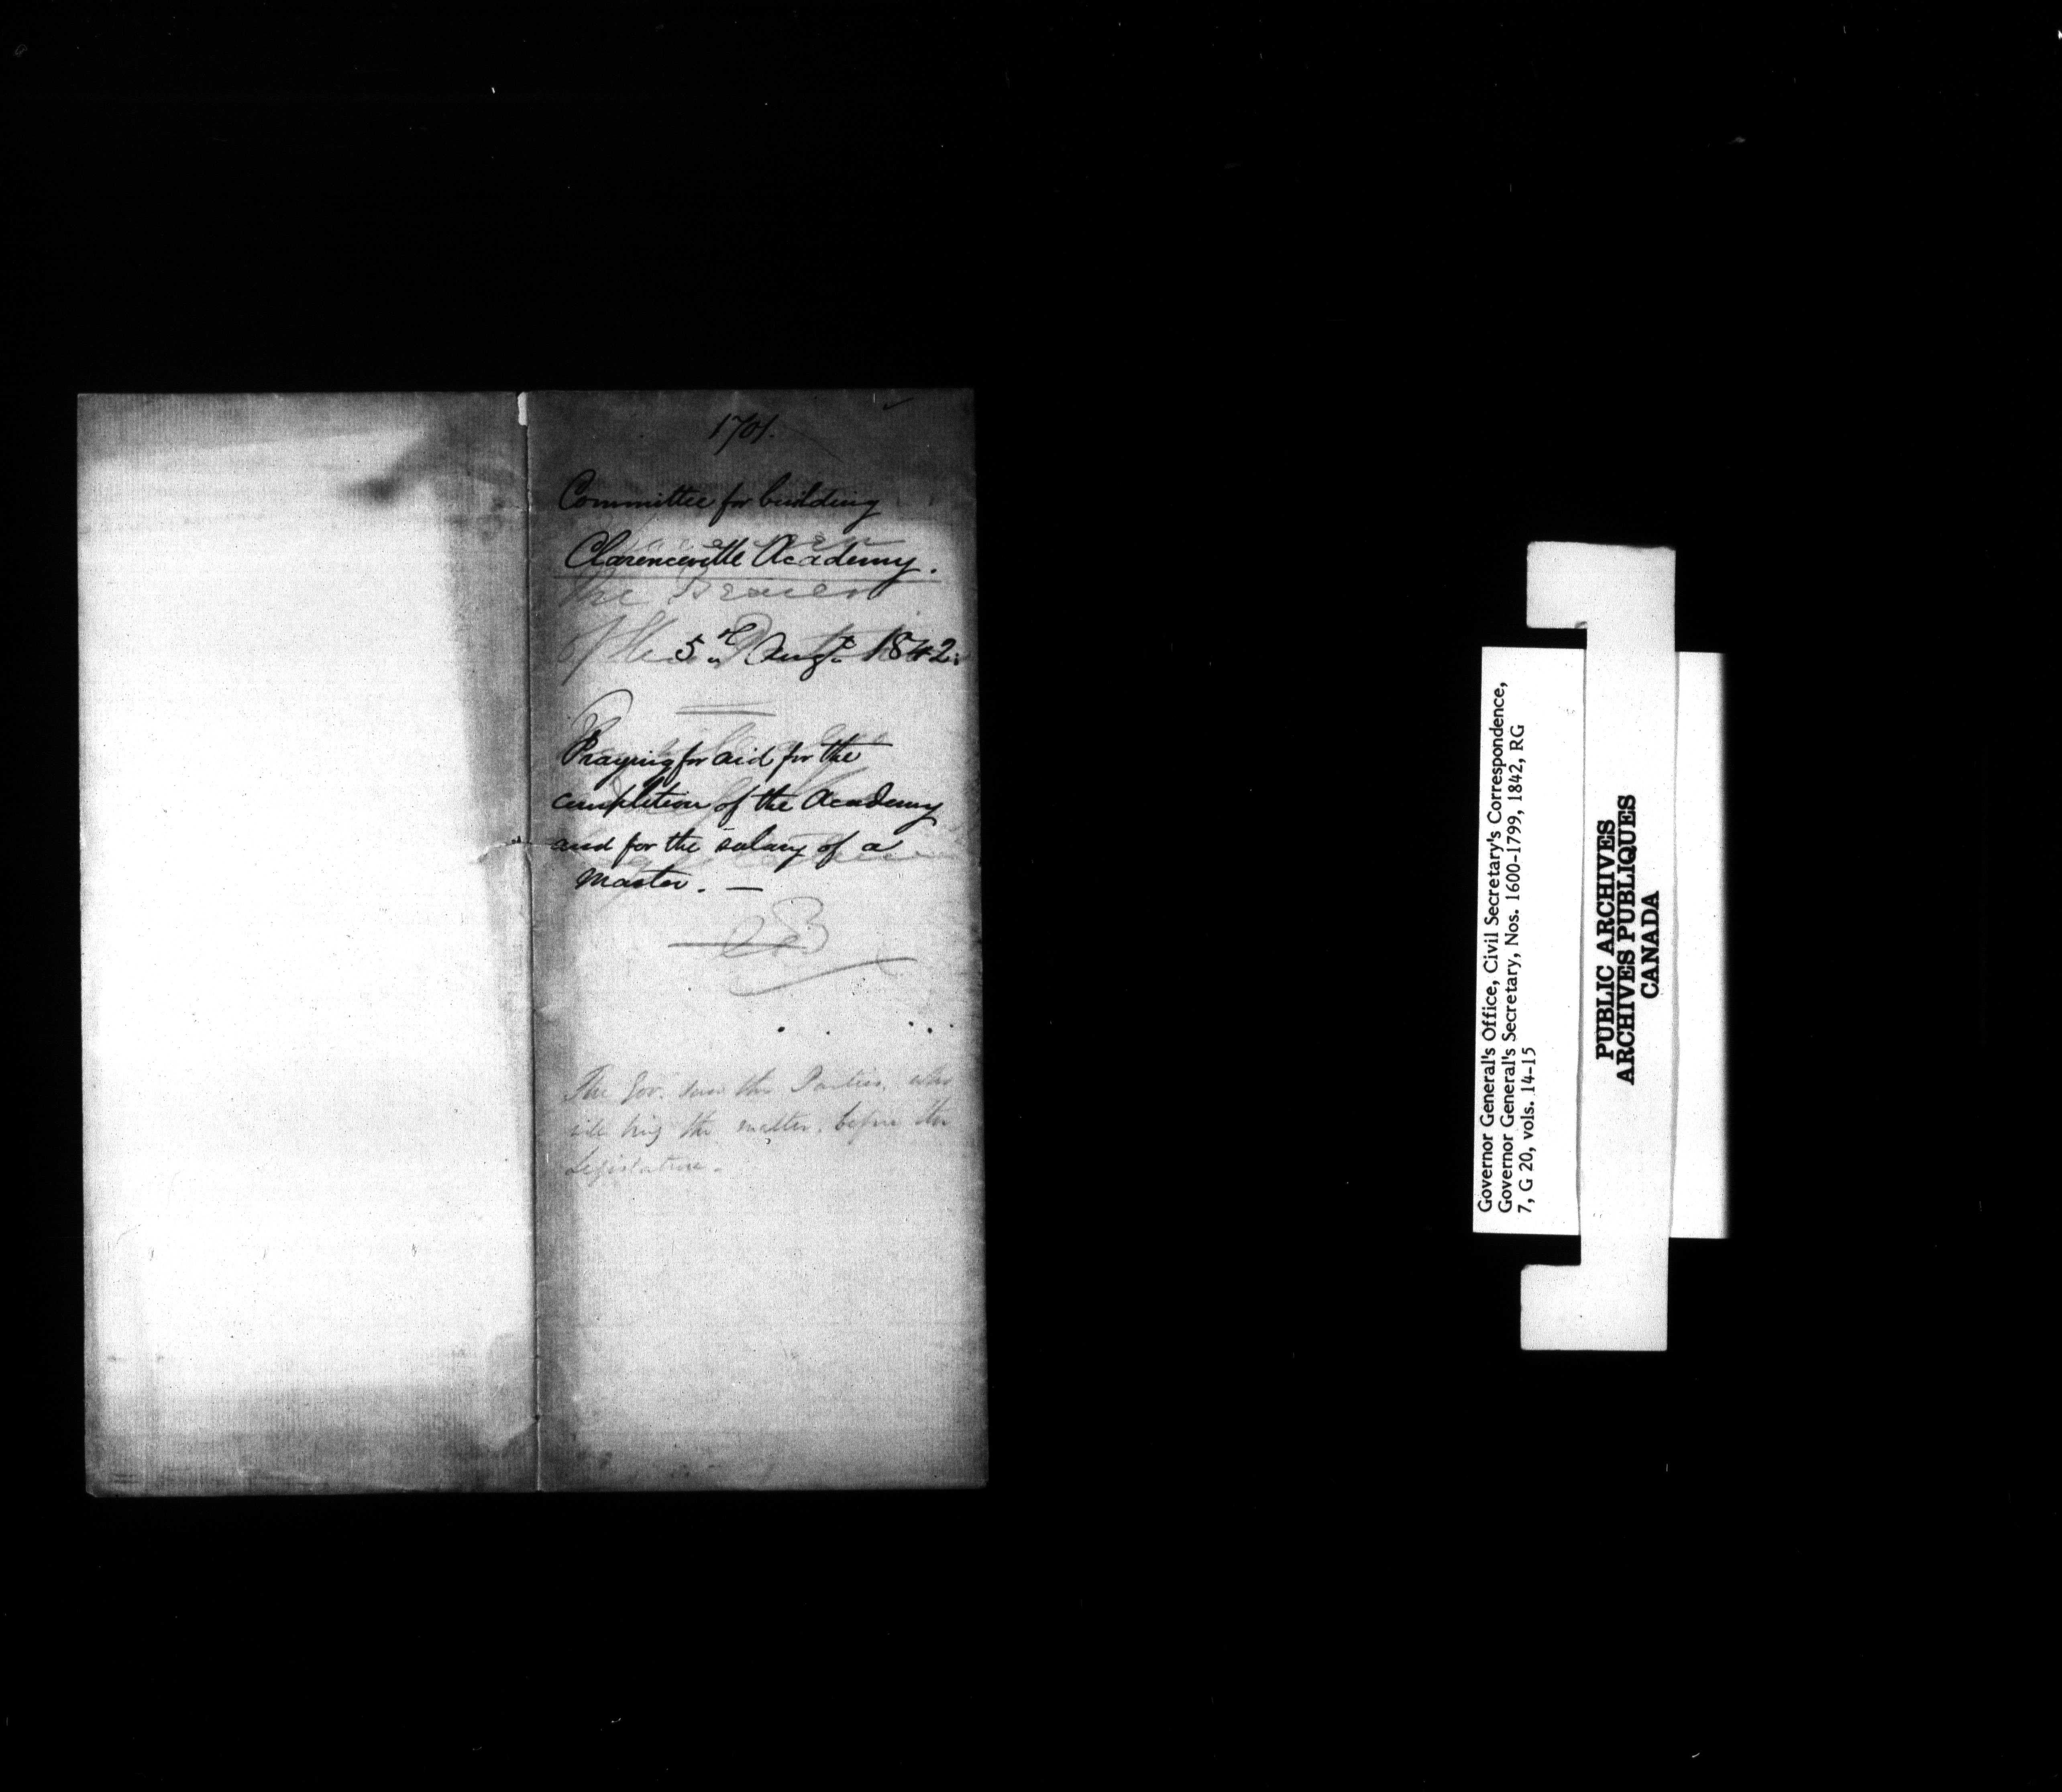 1701.
Committee for building
Clarenceville Academy.
The Bearer
of the
5th Augt. 1842.
Praying for aid for the
completion of the Academy
and for the salary of a
Master. —
The Gov. saw the Parties, who
will bring the matter before the
Legislature.
Governor General's Office, Civil Secretary's Correspondence,
Governor General's Secretary, Nos. 1600-1799, 1842, RG
7, G 20, vols. 14-15
PUBLIC ARCHIVES
ARCHIVES PUBLIQUES
CANADA